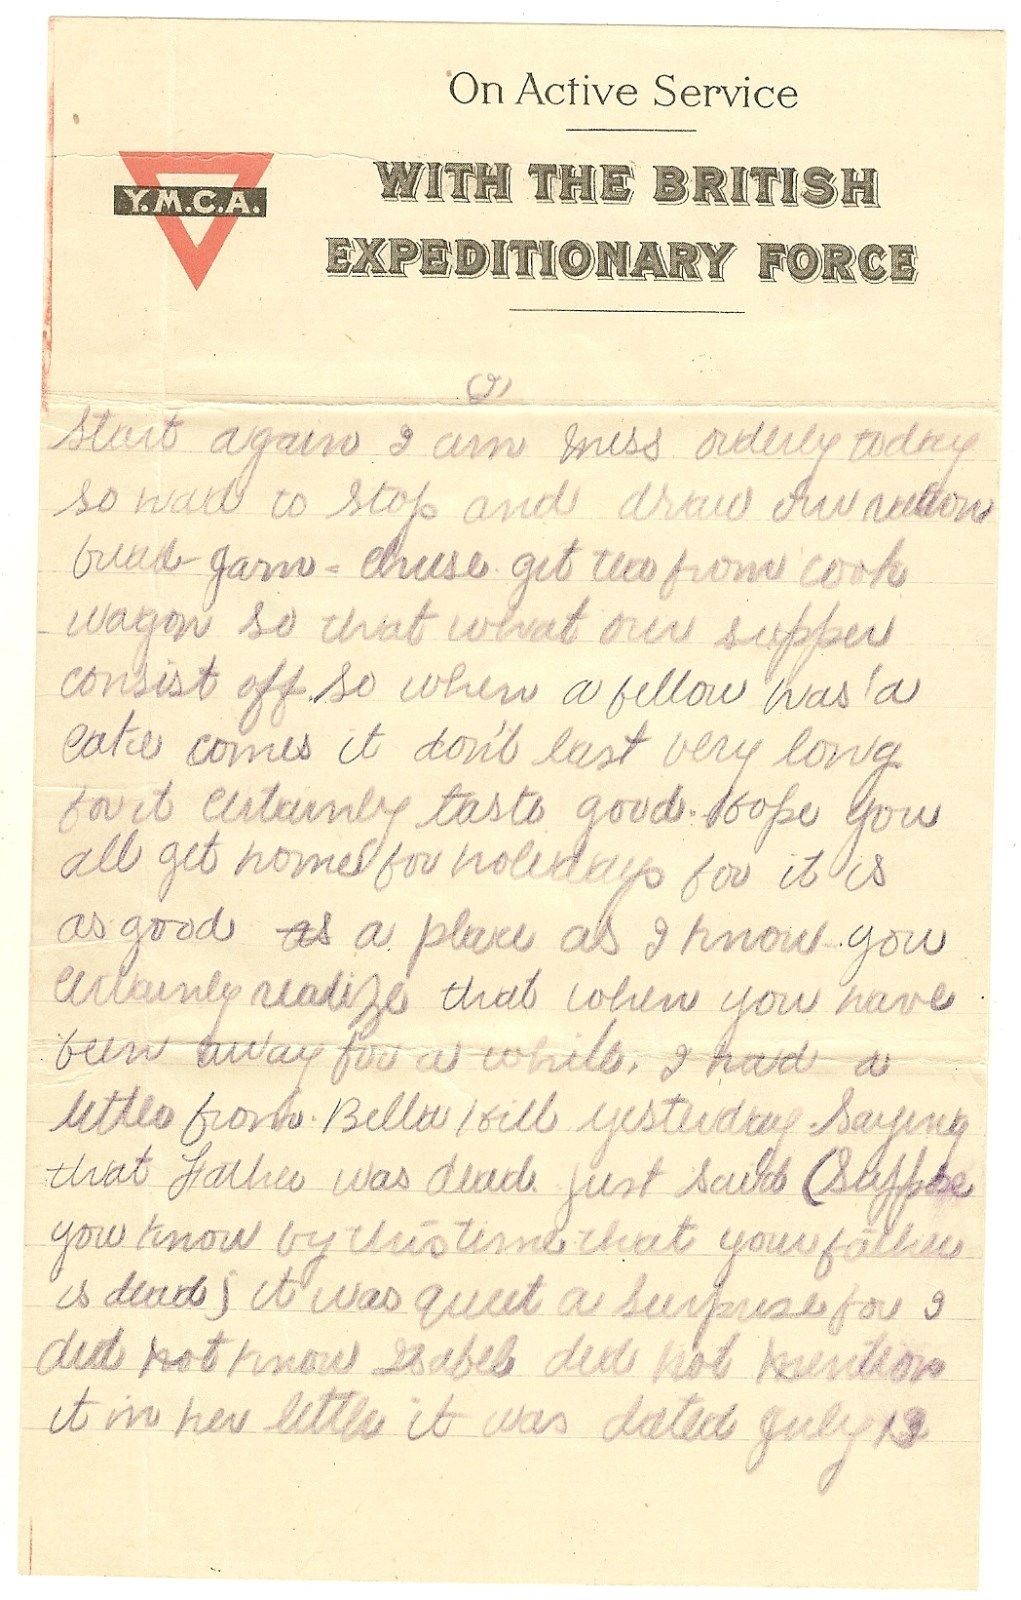 On Active Service
Y.M.C.A.
WITH THE BRITISH
EXPEDITIONARY FORCE
start again I am mess orderly today
so had to stop and draw our rations
bread - jam - cheese get tea from cook
wagon so that what our supper
consist off. so when a fellow has a
cake comes it don't last very long
for it certainly taste good. Hope you
all get home for holidays for it is
as good as a place as I know you
certainly realize that when you have
been away for a while. I had a
letter from Bella Hill yesterday saying
that Father was dead just said (suppose
you know by this time that your father
is dead) it was quiet a surprise for I
did not know Isabel did not mention
it in her letter it was dated July